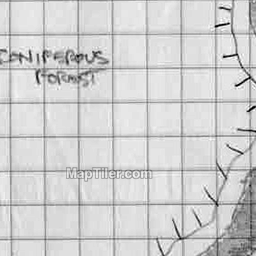 CONIFEROUS
FOREST
MapTiler.com